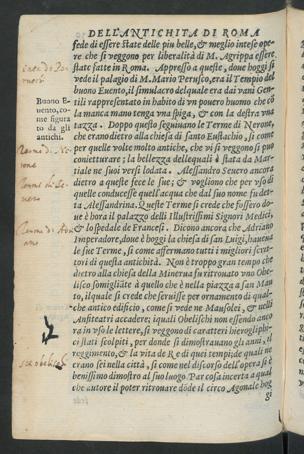 DELL'ANTICHITA DI ROMA
fede di essere state delle piu belle, & meglio intese opere
che si veggono per liberalità di M. Agrippa essere
state fatte in Roma. Appresso a queste, doue hoggi si
vede il palagio di M. Mario Perusco, era il Tempio del
buono Euento, il simulacro del quale era dai vani Gen-
tili rappresentato in habito di vn pouero huomo che cõ
la manca mano tenga vna spiga, & con la destra vna
tazza. Doppo questo seguiuano le Terme di Nerone,
che erano dietro alla chiesa di santo Eustachio, si come
per quelle volte antiche, che vi si veggono si può
conietturare; la bellezza delle quali è stata da Mar-
tiale ne suoi versi lodata. Alessandro Seuero ancora
dietro a queste fece le sue; & vogliono che per vso di
quelle conducesse quell'acqua che dal suo nome fu det
ta Alessandrina. Queste Terme si crede che fossero do-
ue è hora il palazzo delli Illustrissimi Signori Medici,
& lo spedale de Francesi. Dicono ancora che Adriano
Imperadore, doue è hoggi la chiesa di san Luigi, haueua
le sue Terme, si come affermano tutti i migliori scrit-
tori di questa antichità. Non è troppo gran tempo che
dietro alla chiesa della Minerua fu ritrouato vno Obe-
lisco somigliante à quello che è nella piazza a san Mau
to, il quale si crede che seruisse per ornamento di qual-
che antico edificio, come si vede ne Mausolei, & nelli
Anfiteatri accadere; i quali Obelischi non essendo anco
ra in vso le lettere, si veggono di caratteri hieroglifi-
ci stati scolpiti, per donde si dimostrauano gli anni, il
reggimento, & la vita de Re di quei tempi; de quali ne
erano sei nella città, si come nel discorso dell'opera si è
benissimo dimostro al suo luogo. Par cosa incerta a qual
che autore il poter ritrouare doue il circo Agonale hog
gi
Buono E-
uento, co-
me figura
to da gli
antichi.